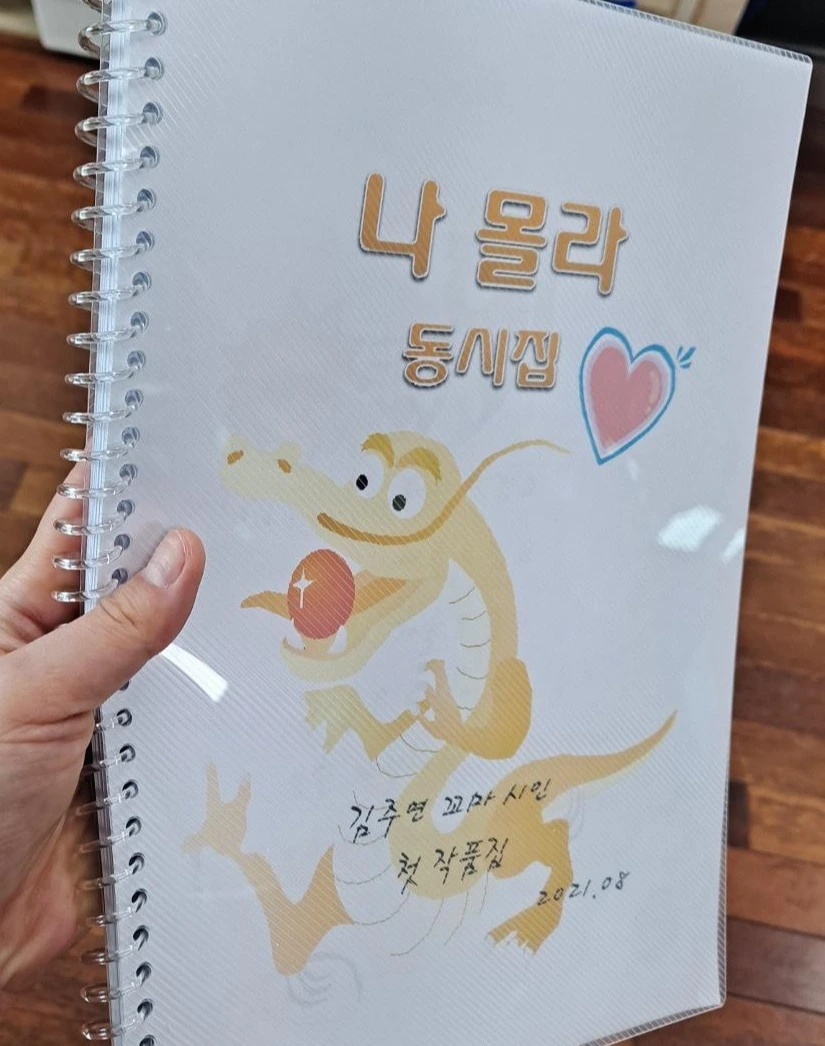 나 몰라
동시집
김주연 꼬마 시인
첫 작품집
2021.08